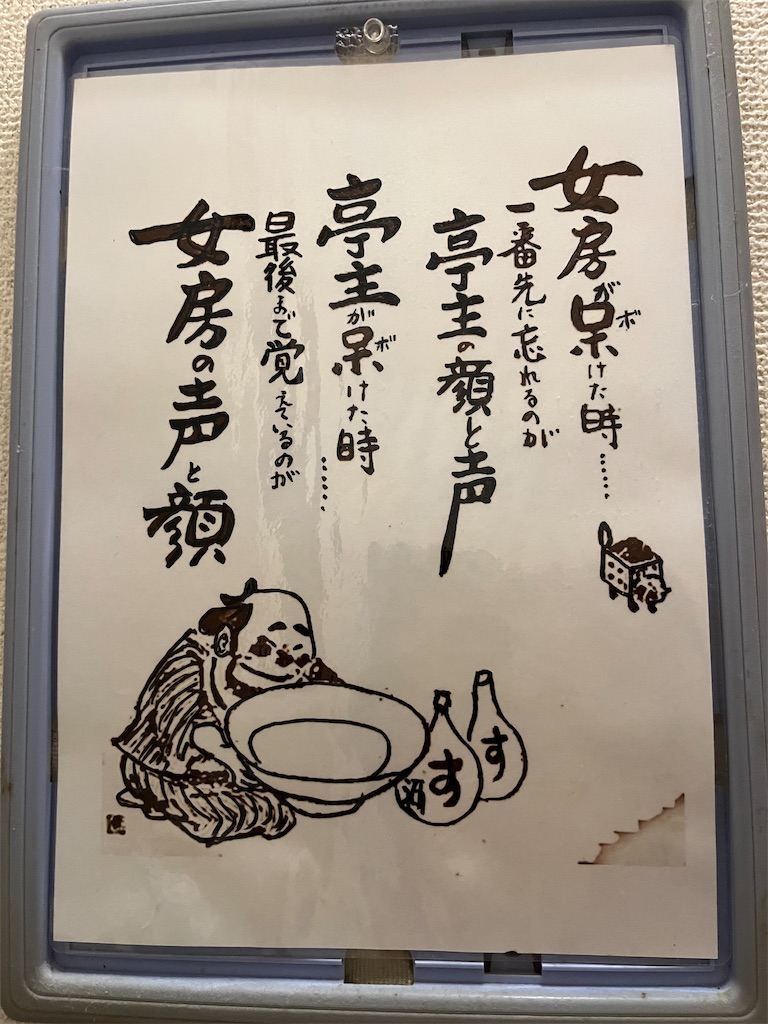 女房が呆けた時……
ボ
一番先に忘れるのが
亭主の顔と声
亭主が呆けた時……
ボ
最後まで覚えているのが
女房の声と顔
す
酒
す